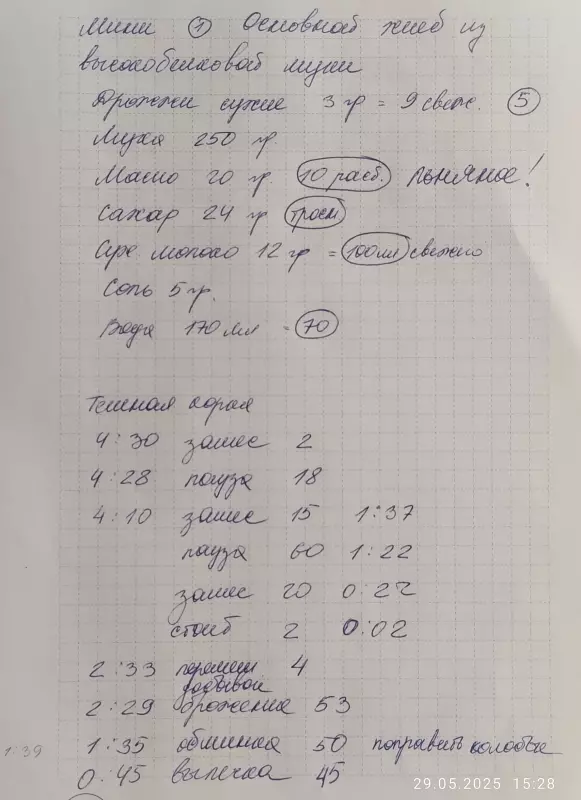 Мини ① Основной хлеб из
высокобелковой муки
Дрожжи сухие 3 гр = 9 свеж. ⑤
Мука 250 гр.
Масло 20 гр. 10 раст. льняное!
Сахар 24 гр трост
Сух. молоко 12 гр = 100 мл свежего
Соль 5 гр.
Вода 170 мл = 70
Темная корка
4:30 замес 2
4:28 пауза 18
4:10 замес 15 1:37
пауза 60 1:22
замес 20 0:22
стоит 2 0:02
2:33 перемеш 4
добавки
2:29 брожение 53
1:39
1:35 обминка 50 поправить колобок
0:45 выпечка 45
29.05.2025 15:28